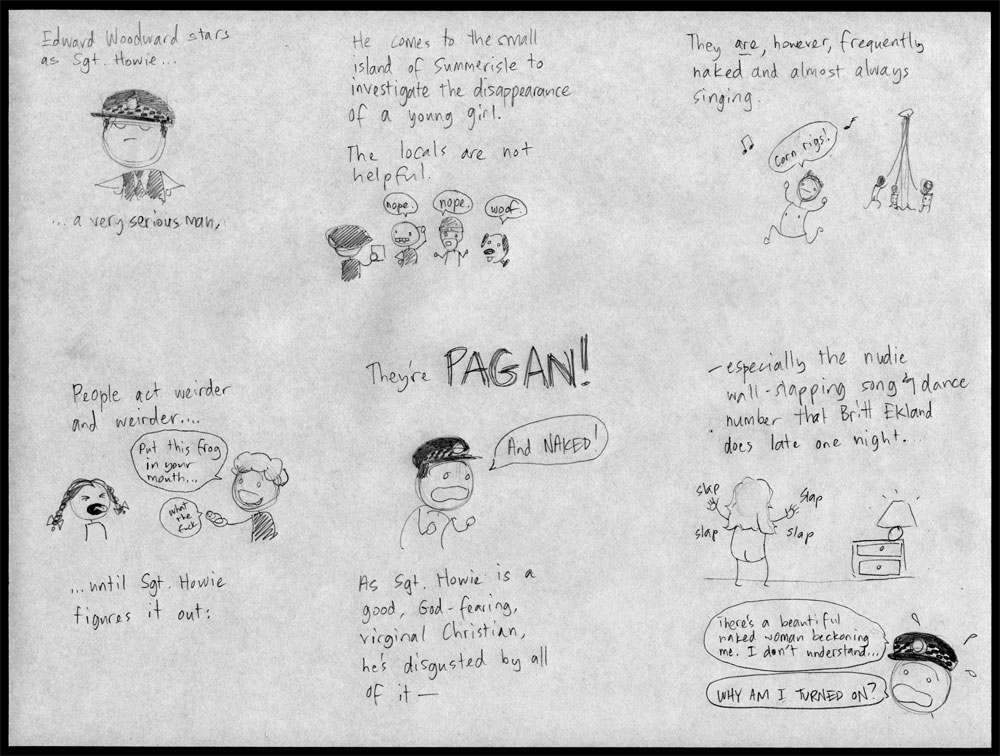 Edward Woodward stars
as Sgt. Howie...
...a very serious man,
He comes to the small
island of Summerisle to
investigate the disappearance
of a young girl.
The locals are not
helpful.
nope.
nope.
woof.
They are, however, frequently
naked and almost always
singing.
Corn rigs!
People act weirder
and weirder....
Put this frog
in your
mouth...
What
the
fuck
...until Sgt. Howie
figures it out:
They're PAGAN!
And NAKED!
As Sgt. Howie is a
good, God-fearing,
virginal Christian,
he's disgusted by all
of it —
- especially the nudie
wall-slapping song & dance
number that Britt Ekland
does late one night.
slap
slap
slap
slap
There's a beautiful
naked woman beckoning
me. I don't understand...
WHY AM I TURNED ON?